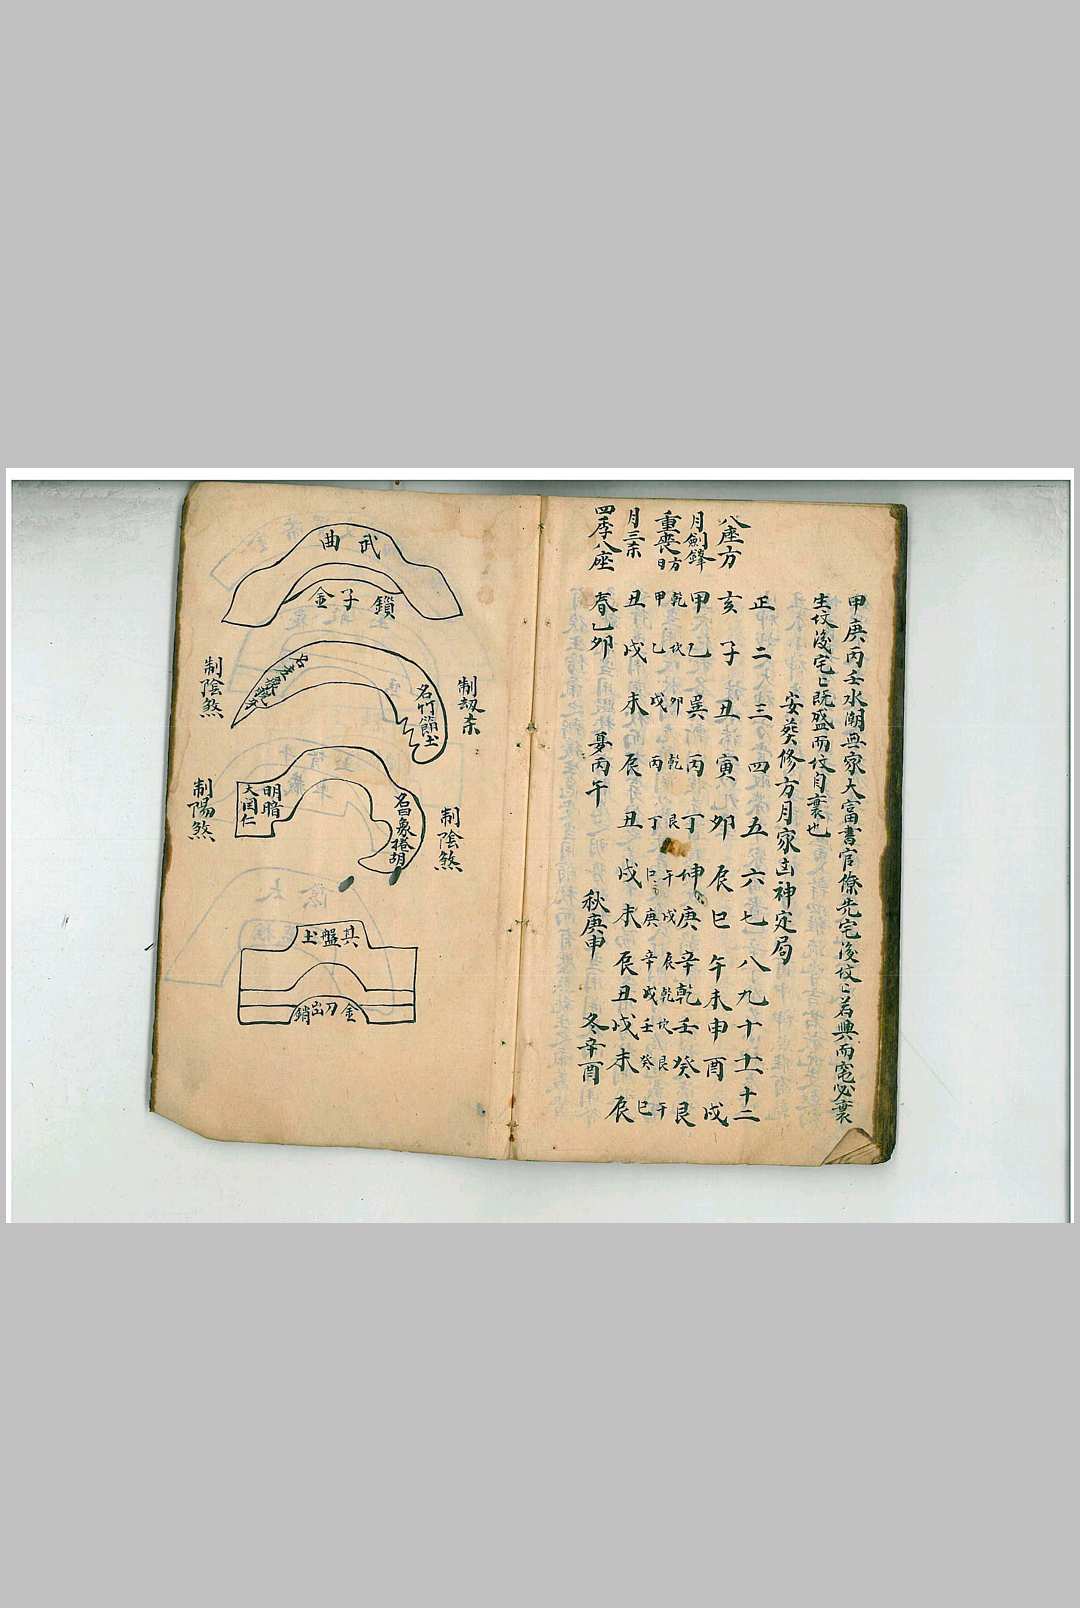 甲庚丙壬水潮典家大富書官僚先宅後坟〻若興而宅必衰
生坟後宅〻既盛而坟自衰也
安葵修方月家凶神定局
正二三四五六七八九十十一十二
八座方 亥子丑寅卯辰巳午未申酉戌
月劍鋒 甲乙巽丙丁坤庚辛乾壬癸艮
重喪日方 甲乙戊丙丁巳庚辛戊壬癸巳
月三杀 丑戌未辰丑戌未辰丑戌未辰
四季八座 春乙卯 夏丙午 秋庚申 冬辛酉
武曲
鎖子金
制劫杀
名竹節土
制陰煞
制陰煞
名曰象捲胡
明暗
制陽煞
具盤土
金刀出銷